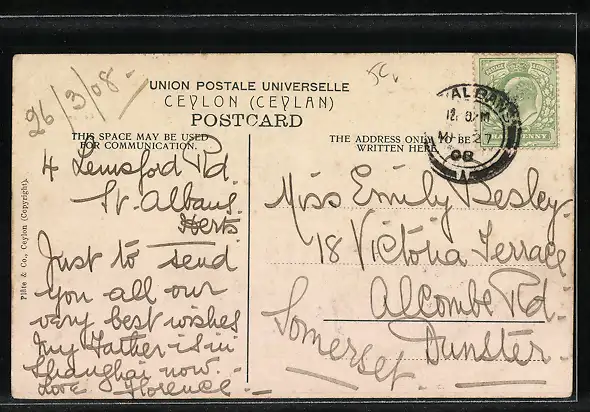 26/3/08-
5c
UNION POSTALE UNIVERSELLE
CEYLON (CEYLAN)
POSTCARD
THIS SPACE MAY BE USED
FOR COMMUNICATION.
THE ADDRESS ONLY TO BE
WRITTEN HERE
ALBANS
12. PM
27
08
4 Lemsford Rd.
St. Albans.
Herts
Just to send
you all our
very best wishes
My Father is in
Shanghai now.-
Love Florence-
Miss Emily Besley.
18 Victoria Terrace
Alcombe Rd.
Dunster.
Somerset.
Plâté & Co., Ceylon (Copyright).